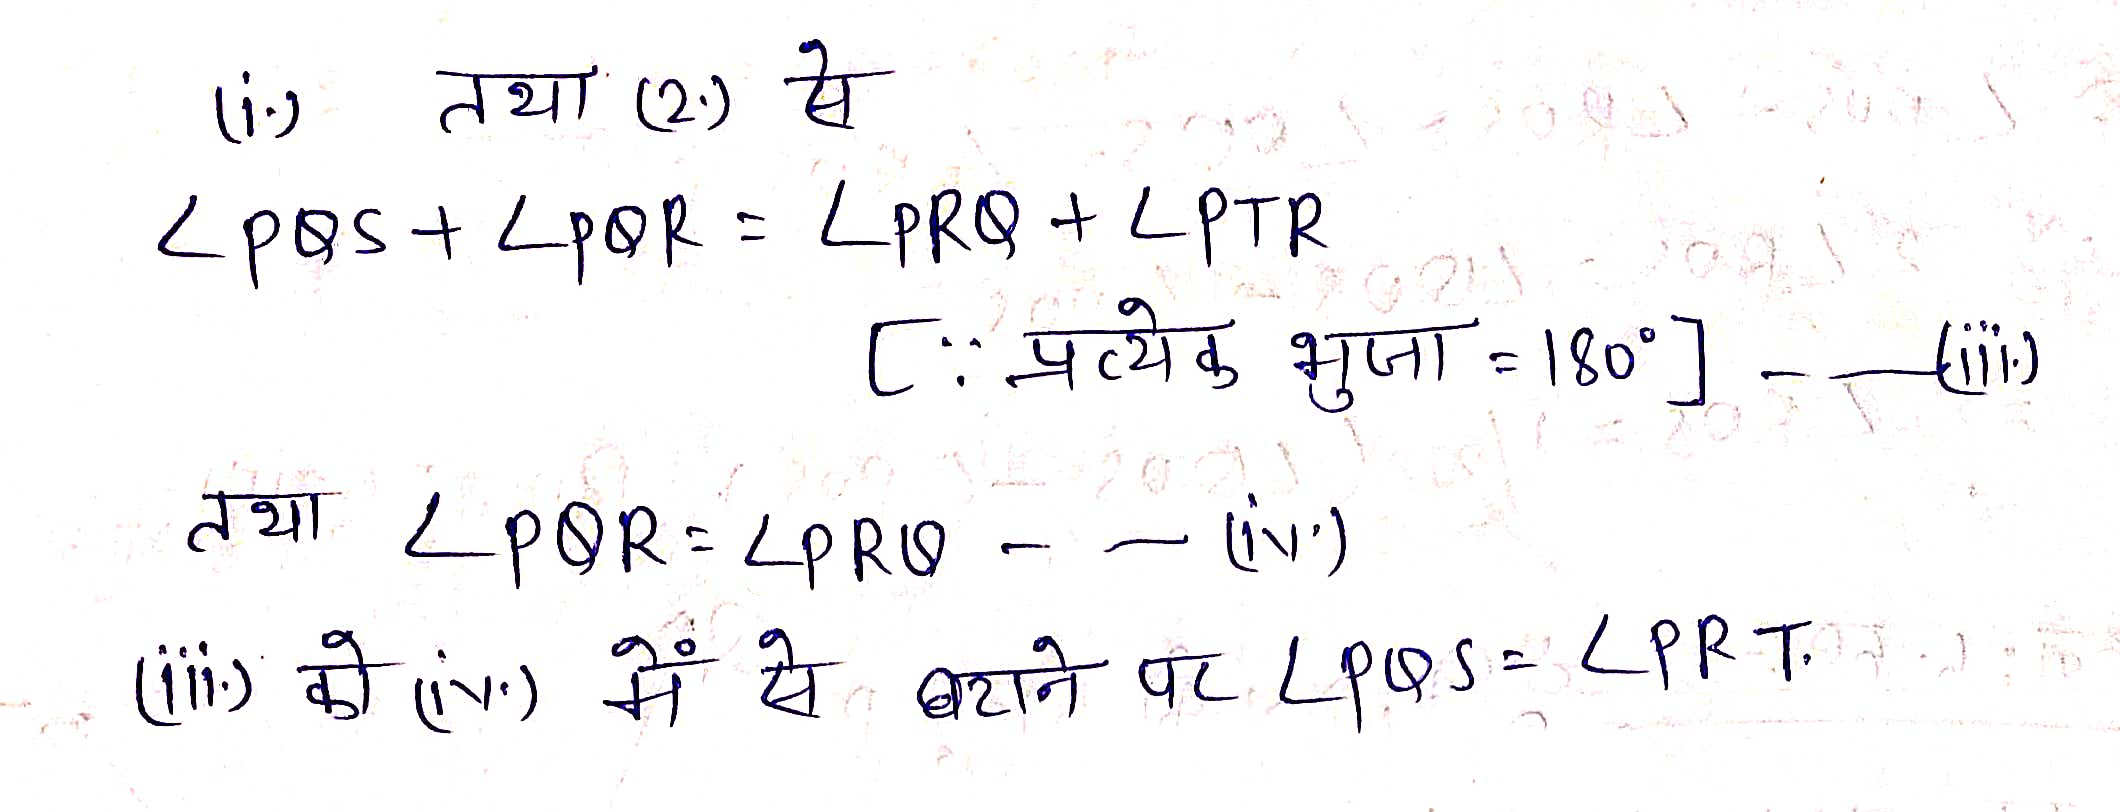 (i.) तथा (2.) से
∠PQS + ∠PQR = ∠PRQ + ∠PTR
[∵ प्रत्येक भुजा = 180°] - — (iii.)
तथा ∠PQR = ∠PRQ - — (iv.)
(iii.) को (iv.) में से घटाने पर ∠PQS = ∠PRT.